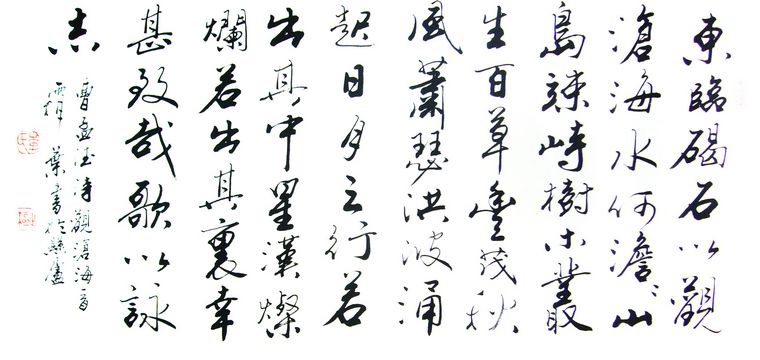 東臨碣石以觀
滄海水何澹〻山
島竦峙樹木叢
生百草豐茂秋
風蕭瑟洪波涌
起日月之行若
出其中星漢燦
爛若出其裏幸
甚致哉歌以詠
志
曹孟德詩觀滄海首
葉書於